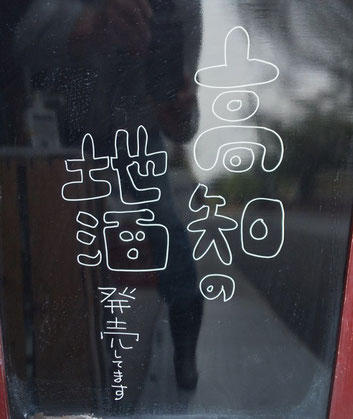 高知の
地酒
発売してます